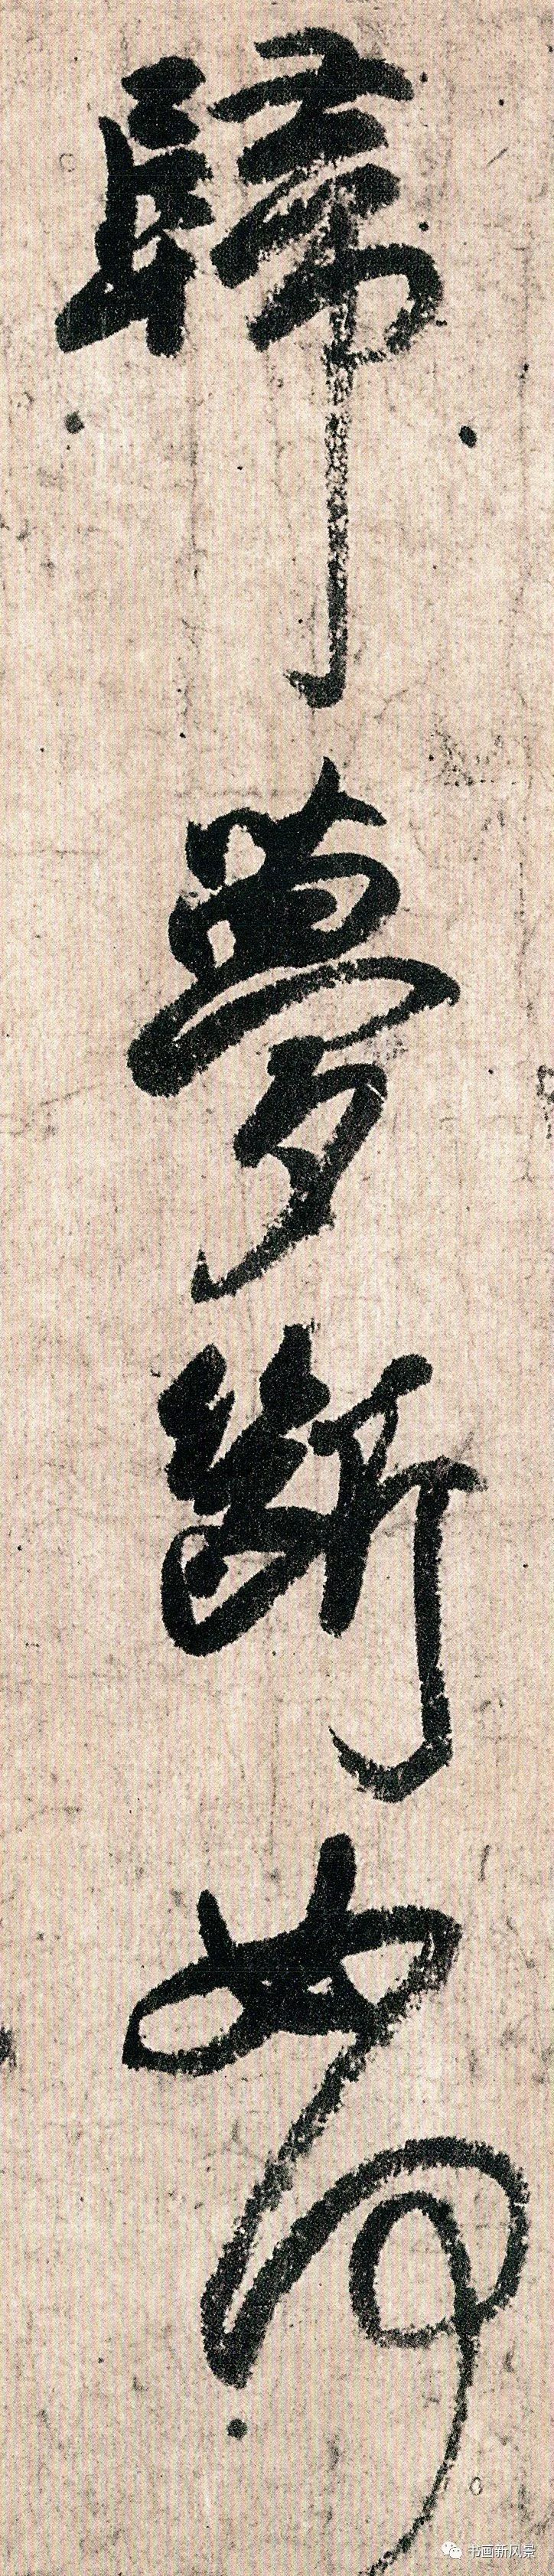 歸夢斷如何
书画新风景